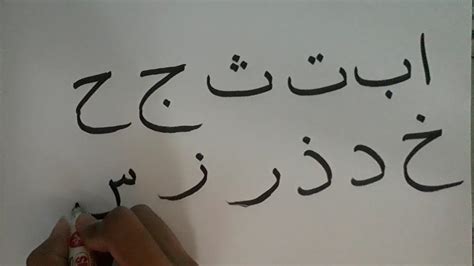 ا ب ت ث ج ح
خ د ذ ر ز س